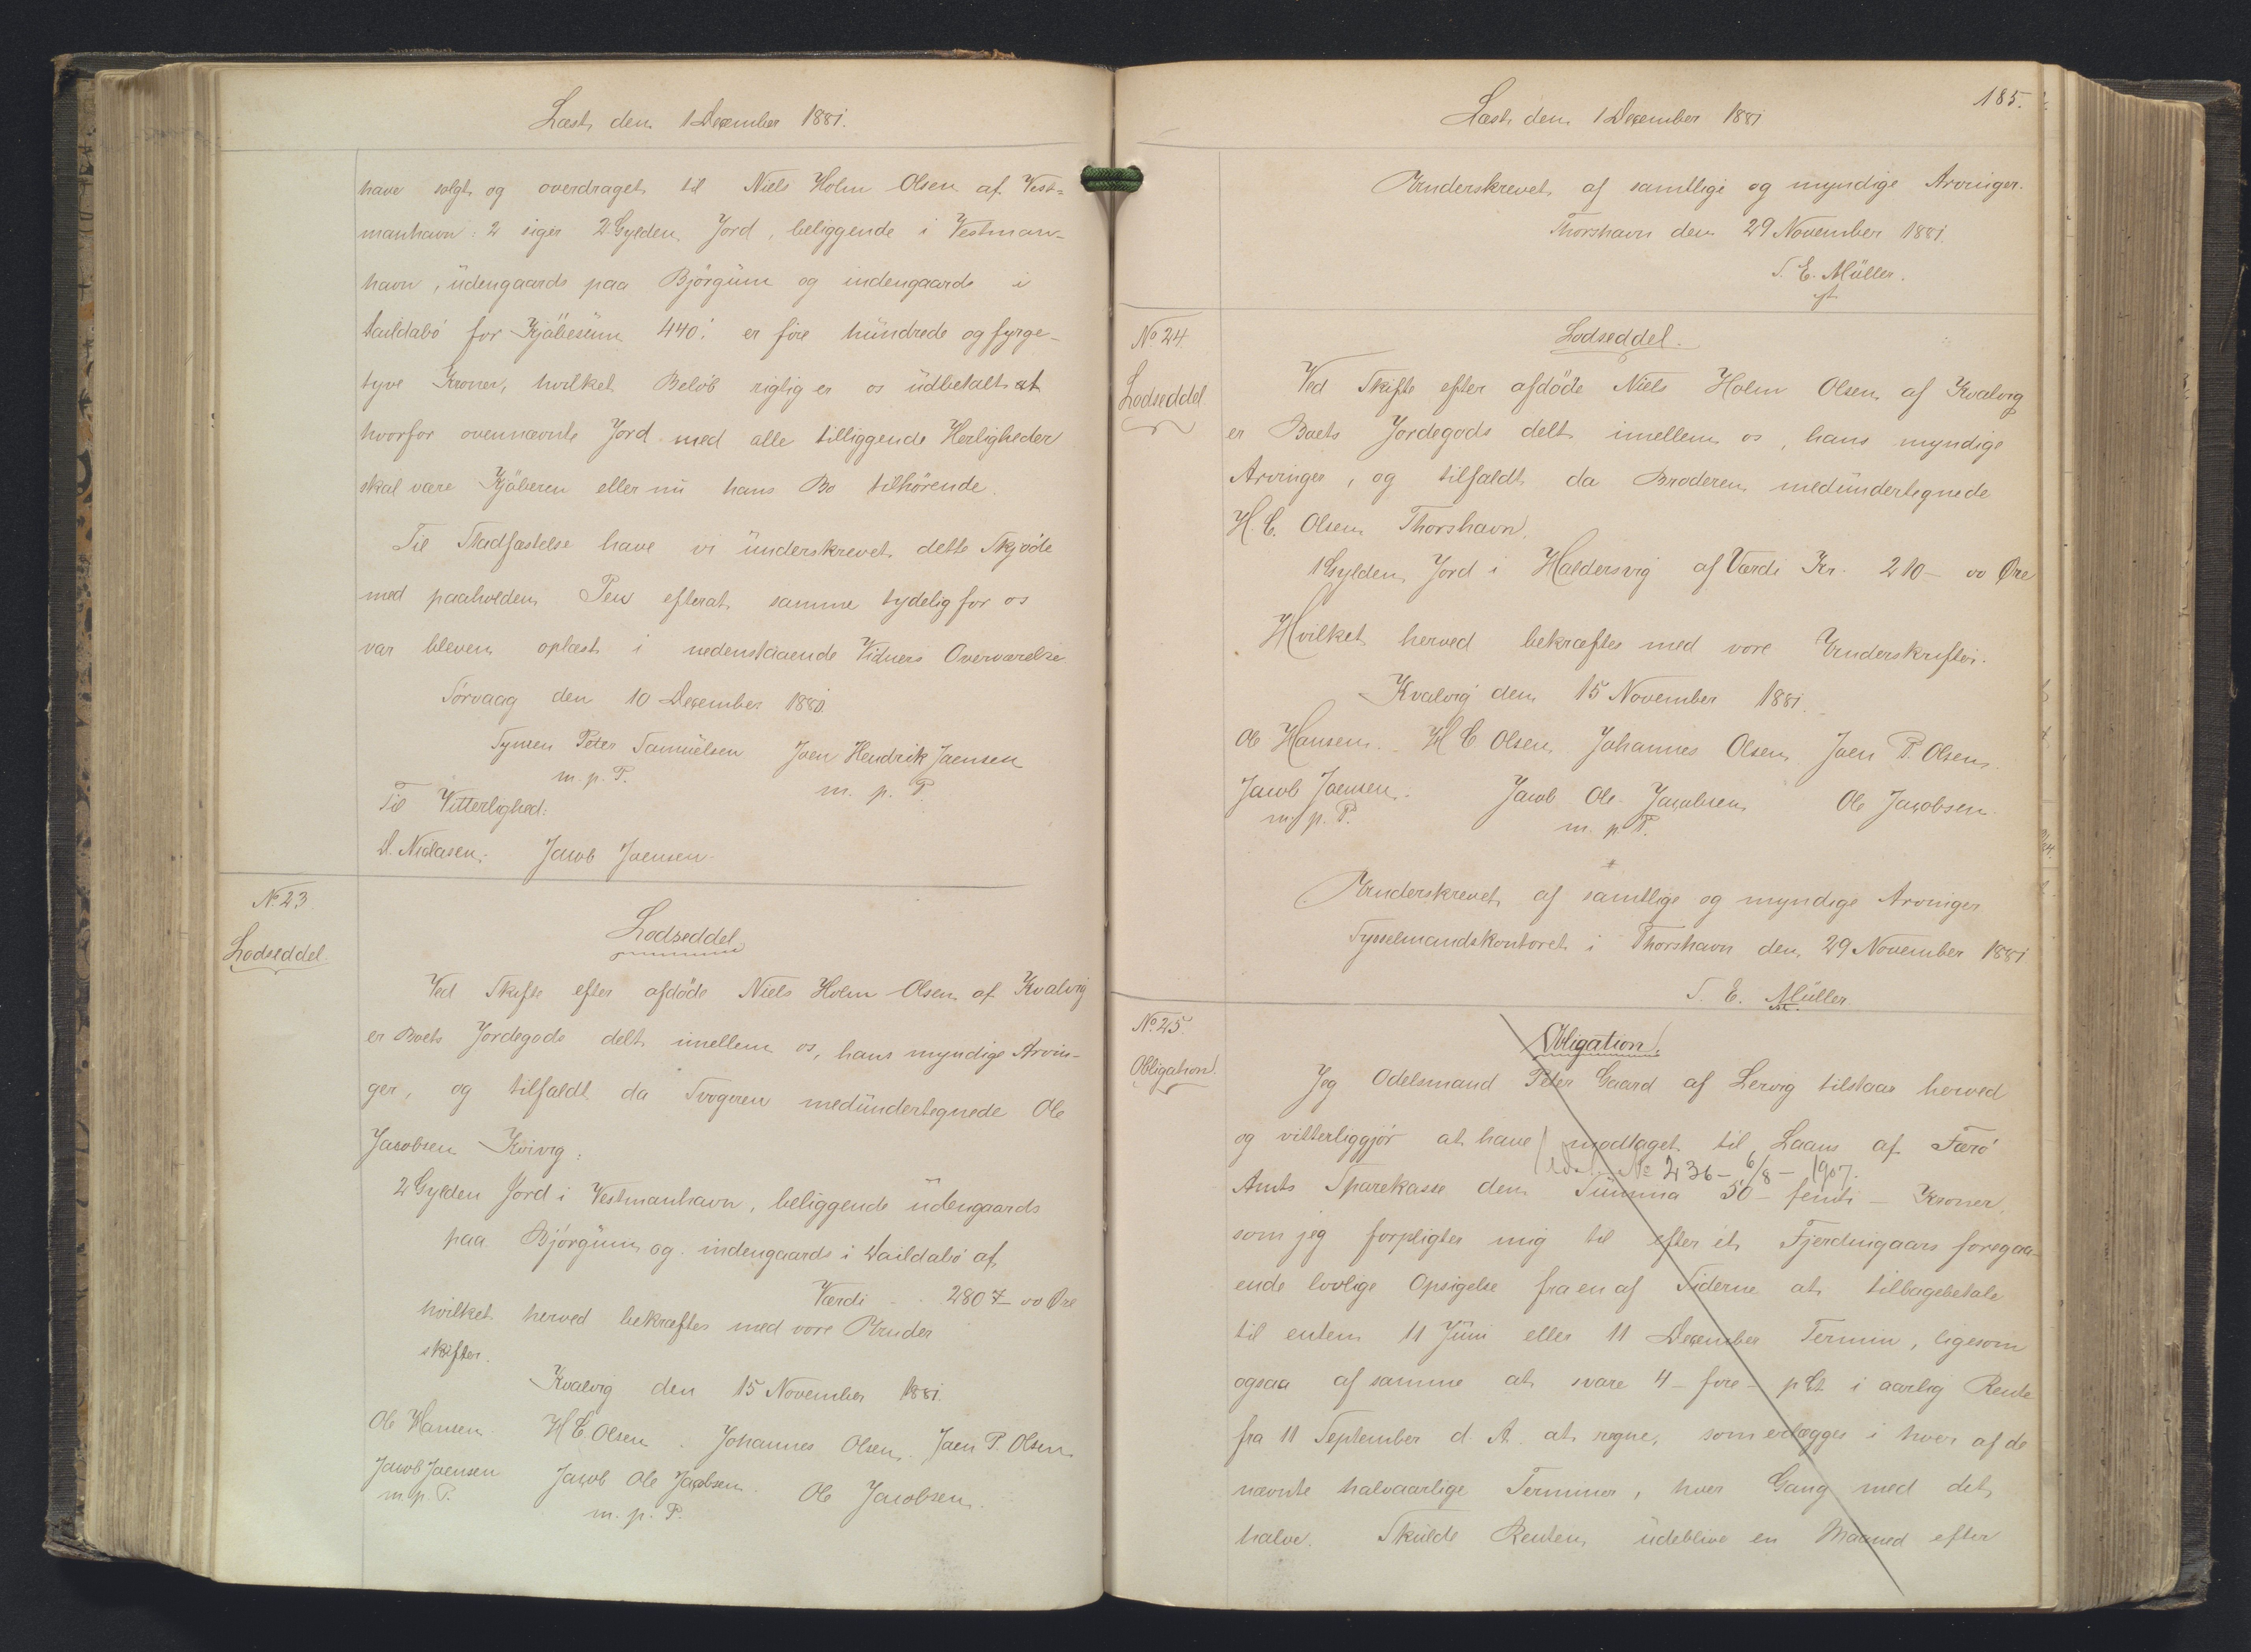 Læst den 1 December 1881.
have solgt og overdraget til Niels Holm Olsen af Vest-
manhavn: 2 siger 2 Gylden Jord, beliggende i Vestman-
havn, üdengaards paa Björgüm og indengaards i
Vaildabö for Kjöbesüm 440: er fire hündrede og fyrge-
tyve Kroner, hvilket Belöb rigtig er os üdbetalt
hvorfor ovennævnte Jord med alle tilliggende Herligheder
skal være Kjöberen eller nü hans Bo tilhörende.
Til Stadfæstelse have vi ünderskrevet dette Skjöde
med paaholden Pen efterat samme tydelig for os
var bleven oplæst i nedenstaaende Vidners Overværelse.
Sörvaag den 10 December 1880.
Symen Peter Samüelsen Joen Hendrik Joensen
m. p. P. m. p. P.
Til Vitterlighed:
D. Niclasen. Jacob Joensen.
No 23.
Lodseddel.
Lodseddel
Ved Skifte efter afdöde Niels Holm Olsen af Kvalvig
er Boets Jordegods delt imellem os, hans myndige Arvin-
ger, og tilfaldt da Svogeren medündertegnede Ole
Jacobsen Kvivig:
2 Gylden Jord i Vestmanhavn, beliggende üdengaards
paa Björgüm og indengaards i Vaildabö af
Værdi 280 – 00 Øre
hvilket herved bekræftes med vore Under
skifter.
Kvalvig den 15 November 1881.
Ole Hansen. H C. Olsen. Johannes Olsen. Joen P. Olsen
Jacob Joensen Jacob Ole Jacobsen. Ole Jacobsen.
m. p. P. m. p. P.
185.
Læst den 1 December 1881
Underskrevet af samtlige og myndige Arvinger.
Thorshavn den 29 November 1881.
S. E. Müller.
No 24
Lodseddel
Lodseddel.
Ved Skifte efter afdöde Niels Holm Olsen af Kvalvig
er Boets Jordegods delt imellem os, hans myndige
Arvinger, og tilfaldt da Broderen medündertegnede
H. C. Olsen Thorshavn.
1 Gylden Jord i Haldersvig af Værdi Kr. 210 – 00 Øre
Hvilket herved bekræftes med vore Underskrifter.
Kvalvig den 15 November 1881.
Ole Hansen. H C Olsen Johannes Olsen Joen P. Olsen.
Jacob Joensen. Jacob Ole Jacobsen Ole Jacobsen.
m. p. P. m. p. P.
Underskrevet af samtlige og myndige Arvinger
Sysselmandskontoret i Thorshavn den 29 November 1881
S. E. Müller.
No 25.
Obligation
Obligation.
Jeg Odelsmand Peter Gaard af Lervig tilstaar herved
og vitterliggjör at have modtaget til Laans af Færö
No 236 – 6/8 – 1907.
Amts Sparekasse den Sümma 50 – femti – Kroner,
som jeg forpligter mig til efter ét Fjerdingaars foregaa-
ende lovlige Opsigelse fra en af Siderne at tilbagebetale
til enten 11 Jüni eller 11 December Termin, ligesom
ogsaa af samme at svare 4 – fire – pCt i aarlig Rente
fra 11 September d. A. at regne, som erlægges i hver af de
nævnte halvaarlige Terminer, hver Gang med det
halve. Skülde Renten üdeblive en Maaned efter